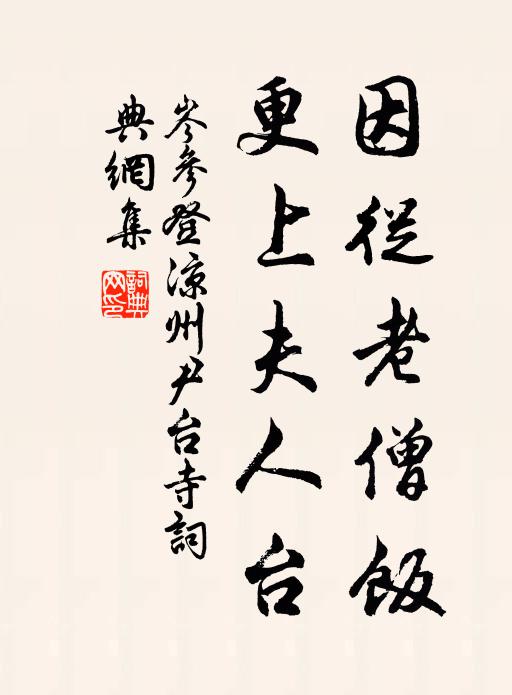 因從老僧飯
更上夫人台
岑參登涼州尹台寺詞
典網集
詞典網印